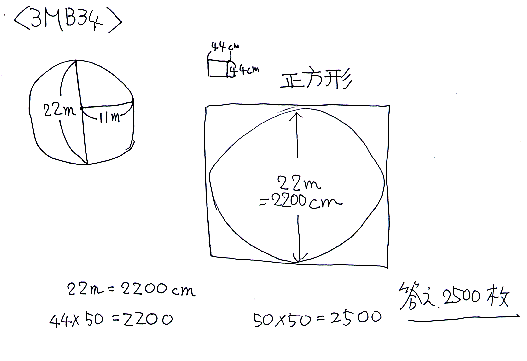 <3MB34>
44cm
44cm
正方形
22m
11m
22m
=2200cm
22m=2200cm
44×50=2200
50×50=2500
答え 2500枚